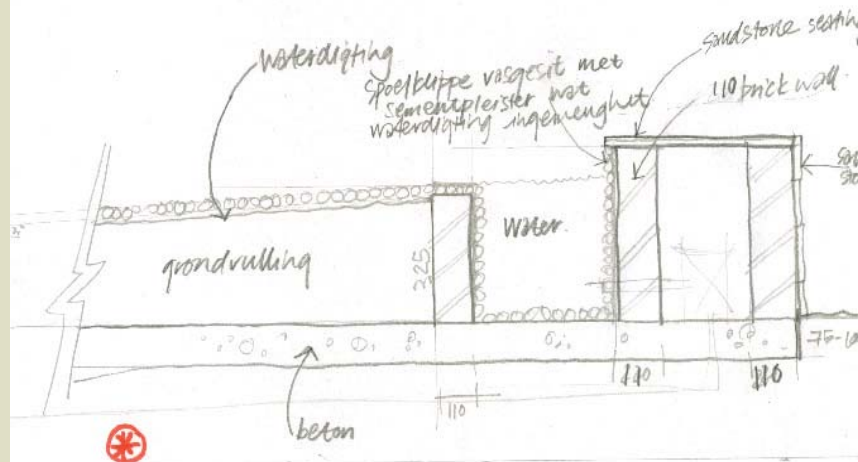 waterdigting
spoelklippe vasgesit met
sementpleister wat
waterdigting ingemeng het
sandstone seating
110 brick wall
grondvulling
225
Water.
110
110
110
beton